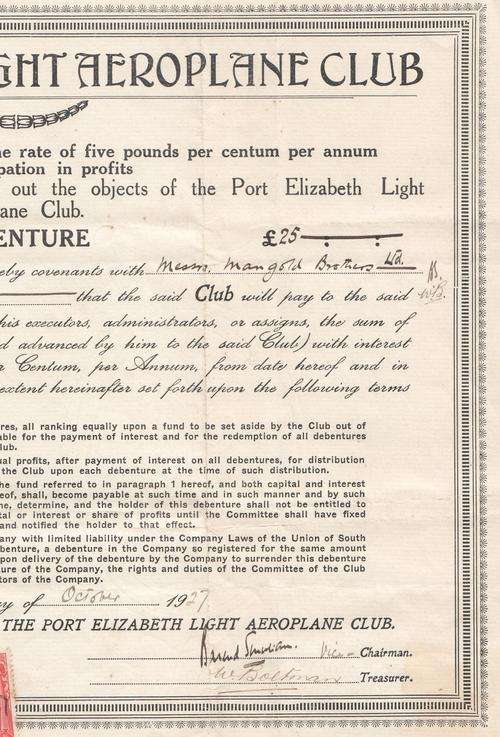 GHT AEROPLANE CLUB
he rate of five pounds per centum per annum
pation in profits
out the objects of the Port Elizabeth Light
ane Club.
ENTURE £25
eby covenants with Messrs. Mangold Brothers Ltd.
that the said Club will pay to the said
his executors, administrators, or assigns, the sum of
d advanced by him to the said Club) with interest
r Centum, per Annum, from date hereof and in
extent hereinafter set forth upon the following terms
res, all ranking equally upon a fund to be set aside by the Club out of
able for the payment of interest and for the redemption of all debentures
lub.
ual profits, after payment of interest on all debentures, for distribution
the Club upon each debenture at the time of such distribution.
he fund referred to in paragraph 1 hereof, and both capital and interest
eof, shall, become payable at such time and in such manner and by such
ne, determine, and the holder of this debenture shall not be entitled to
tal or interest or share of profits until the Committee shall have fixed
and notified the holder to that effect.
any with limited liability under the Company Laws of the Union of South
benture, a debenture in the Company so registered for the same amount
pon delivery of the debenture by the Company to surrender this debenture
ure of the Company, the rights and duties of the Committee of the Club
tors of the Company.
y of October 1927
THE PORT ELIZABETH LIGHT AEROPLANE CLUB.
Vice- Chairman.
Treasurer.